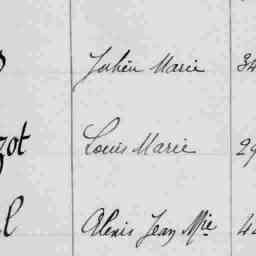 Julien Marie 34
zot Louis Marie 29
l Alexis Jean Mie 44